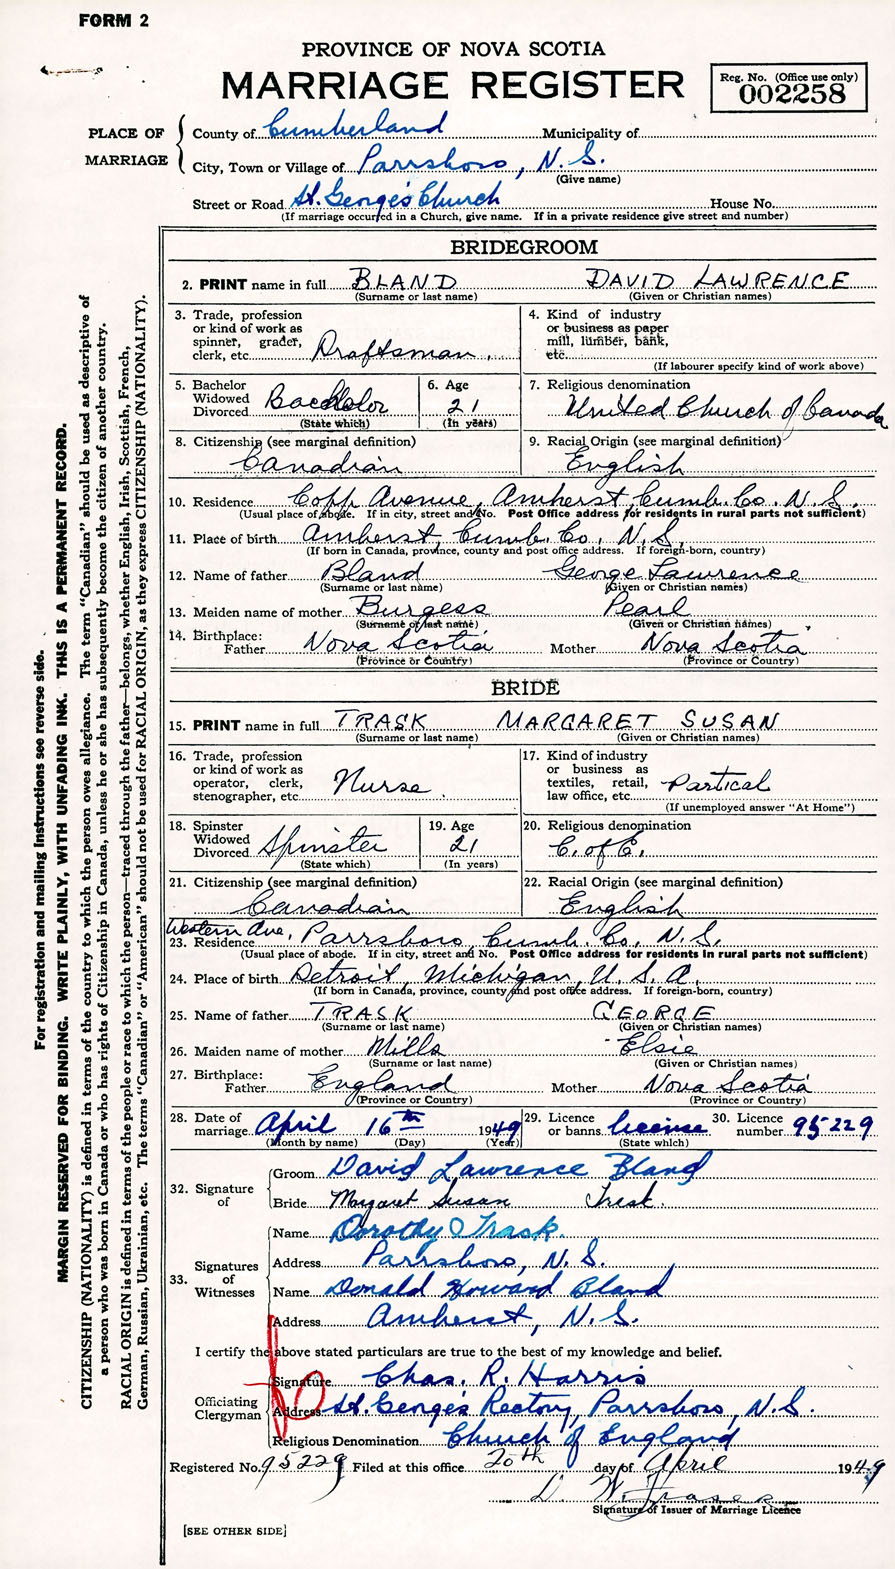 FORM 2
PROVINCE OF NOVA SCOTIA
MARRIAGE REGISTER
Reg. No. (Office use only)
002258
PLACE OF MARRIAGE
County of Cumberland Municipality of
City, Town or Village of Parrsboro, N. S.
(Give name)
Street or Road St. George's Church House No.
(If marriage occurred in a Church, give name. If in a private residence give street and number)
BRIDEGROOM
2. PRINT name in full BLAND DAVID LAWRENCE
(Surname or last name) (Given or Christian names)
3. Trade, profession or kind of work as spinner, grader, clerk, etc. Draftsman
4. Kind of industry or business as paper mill, lumber, bank, etc.
(If labourer specify kind of work above)
5. Bachelor Widowed Divorced Bachelor
(State which)
6. Age 21
(In years)
7. Religious denomination
United Church of Canada
8. Citizenship (see marginal definition)
Canadian
9. Racial Origin (see marginal definition)
English
10. Residence Copp Avenue, Amherst, Cumb. Co. N. S.
(Usual place of abode. If in city, street and No. Post Office address for residents in rural parts not sufficient)
11. Place of birth Amherst, Cumb. Co., N. S.
(If born in Canada, province, county and post office address. If foreign-born, country)
12. Name of father Bland George Lawrence
(Surname or last name) (Given or Christian names)
13. Maiden name of mother Burgess Pearl
(Surname or last name) (Given or Christian names)
14. Birthplace:
Father Nova Scotia Mother Nova Scotia
(Province or Country) (Province or Country)
BRIDE
15. PRINT name in full TRASK MARGARET SUSAN
(Surname or last name) (Given or Christian names)
16. Trade, profession or kind of work as operator, clerk, stenographer, etc. Nurse
17. Kind of industry or business as textiles, retail, law office, etc. Partical
(If unemployed answer "At Home")
18. Spinster Widowed Divorced Spinster
(State which)
19. Age 21
(In years)
20. Religious denomination
C. of E.
21. Citizenship (see marginal definition)
Canadian
22. Racial Origin (see marginal definition)
English
Western Ave,
23. Residence Parrsboro, Cumb. Co. N. S.
(Usual place of abode. If in city, street and No. Post Office address for residents in rural parts not sufficient)
24. Place of birth Detroit, Michigan, U. S. A.
(If born in Canada, province, county and post office address. If foreign-born, country)
25. Name of father TRASK GEORGE
(Surname or last name) (Given or Christian names)
26. Maiden name of mother Mills Elsie
(Surname or last name) (Given or Christian names)
27. Birthplace:
Father England Mother Nova Scotia
(Province or Country) (Province or Country)
28. Date of marriage April 16th 1949
(Month by name) (Day) (Year)
29. Licence or banns license
(State which)
30. Licence number 95229
32. Signature of
Groom David Lawrence Bland
Bride Margaret Susan Trask
33. Signatures of Witnesses
Name Dorothy O Trask.
Address Parrsboro, N. S.
Name Donald Howard Bland
Address Amherst, N. S.
I certify the above stated particulars are true to the best of my knowledge and belief.
Officiating Clergyman
Signature Chas. R. Harris
Address St. George's Rectory, Parrsboro, N. S.
Religious Denomination Church of England
Registered No. 95229 Filed at this office 20th day of April 1949
D. W. Fraser
Signature of Issuer of Marriage Licence
[SEE OTHER SIDE]
For registration and mailing instructions see reverse side.
MARGIN RESERVED FOR BINDING. WRITE PLAINLY, WITH UNFADING INK. THIS IS A PERMANENT RECORD.
CITIZENSHIP (NATIONALITY) is defined in terms of the country to which the person owes allegiance. The term "Canadian" should be used as descriptive of
a person who was born in Canada or who has rights of Citizenship in Canada, unless he or she has subsequently become the citizen of another country.
RACIAL ORIGIN is defined in terms of the people or race to which the person—traced through the father—belongs, whether English, Irish, Scottish, French,
German, Russian, Ukrainian, etc. The terms "Canadian" or "American" should not be used for RACIAL ORIGIN, as they express CITIZENSHIP (NATIONALITY).